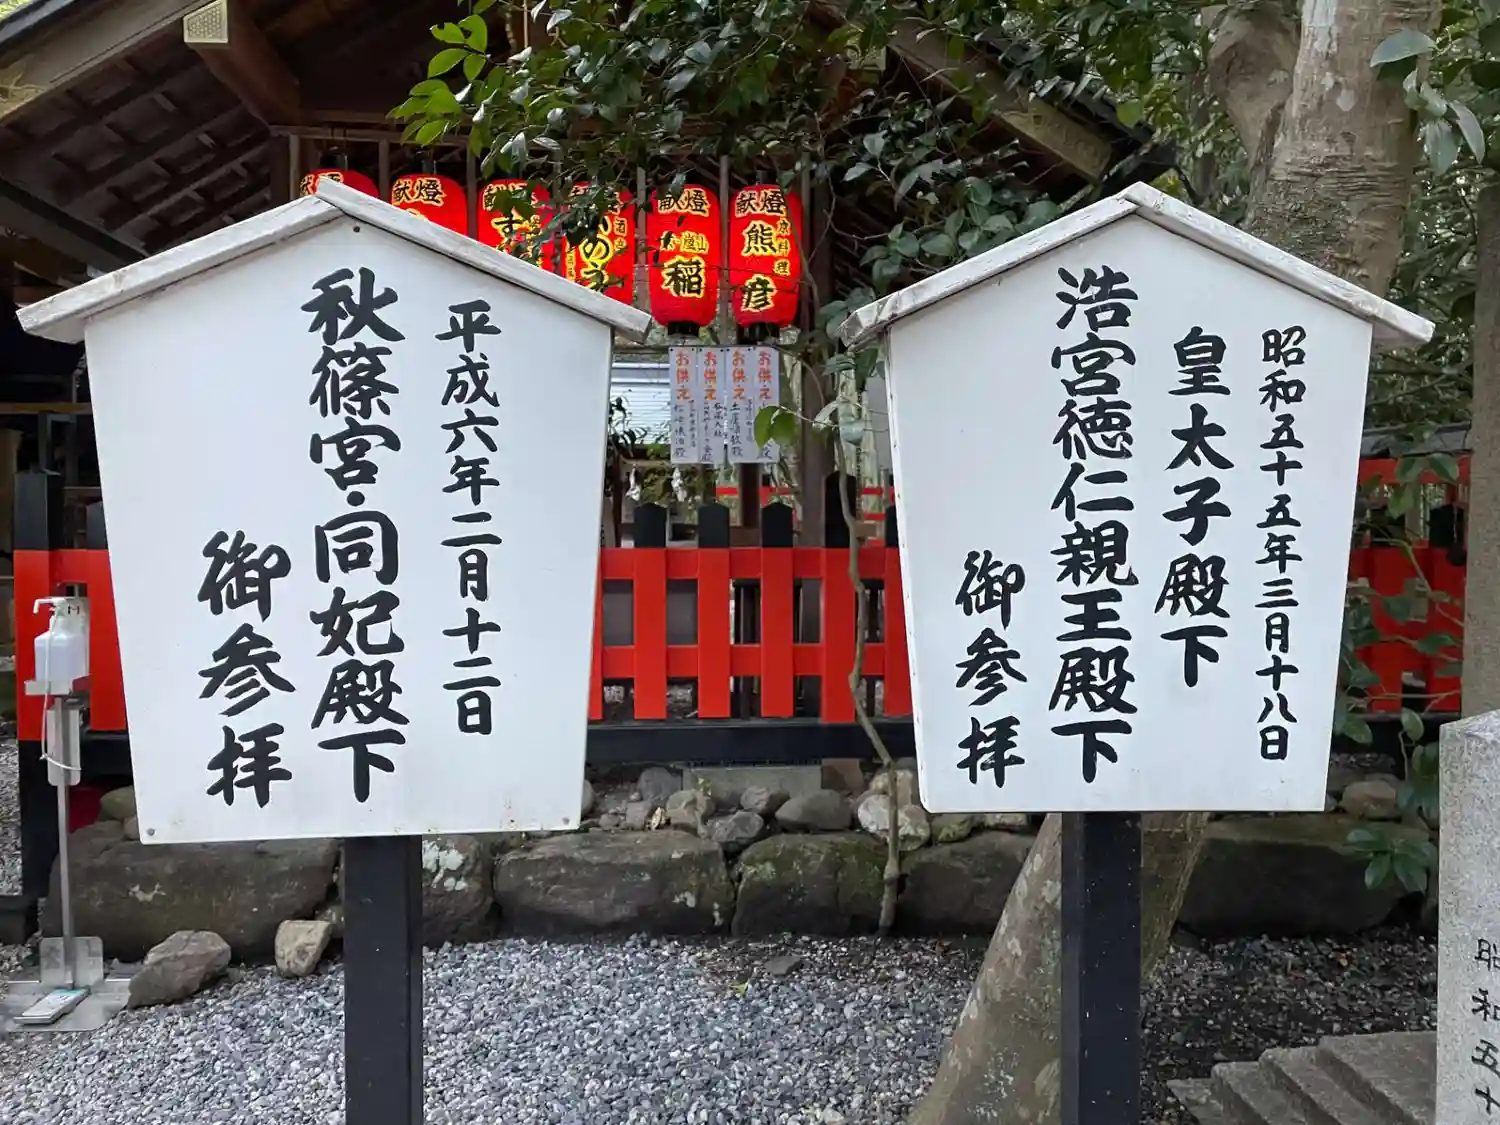 昭和五十五年三月十八日
皇太子殿下
浩宮徳仁親王殿下
御参拝
平成六年二月十二日
秋篠宮・同妃殿下
御参拝
献燈
熊彦
京料理
献燈
嵐山
稲
献燈
献燈
献燈
献燈
お供え
お供え
お供え
お供え
昭和五十